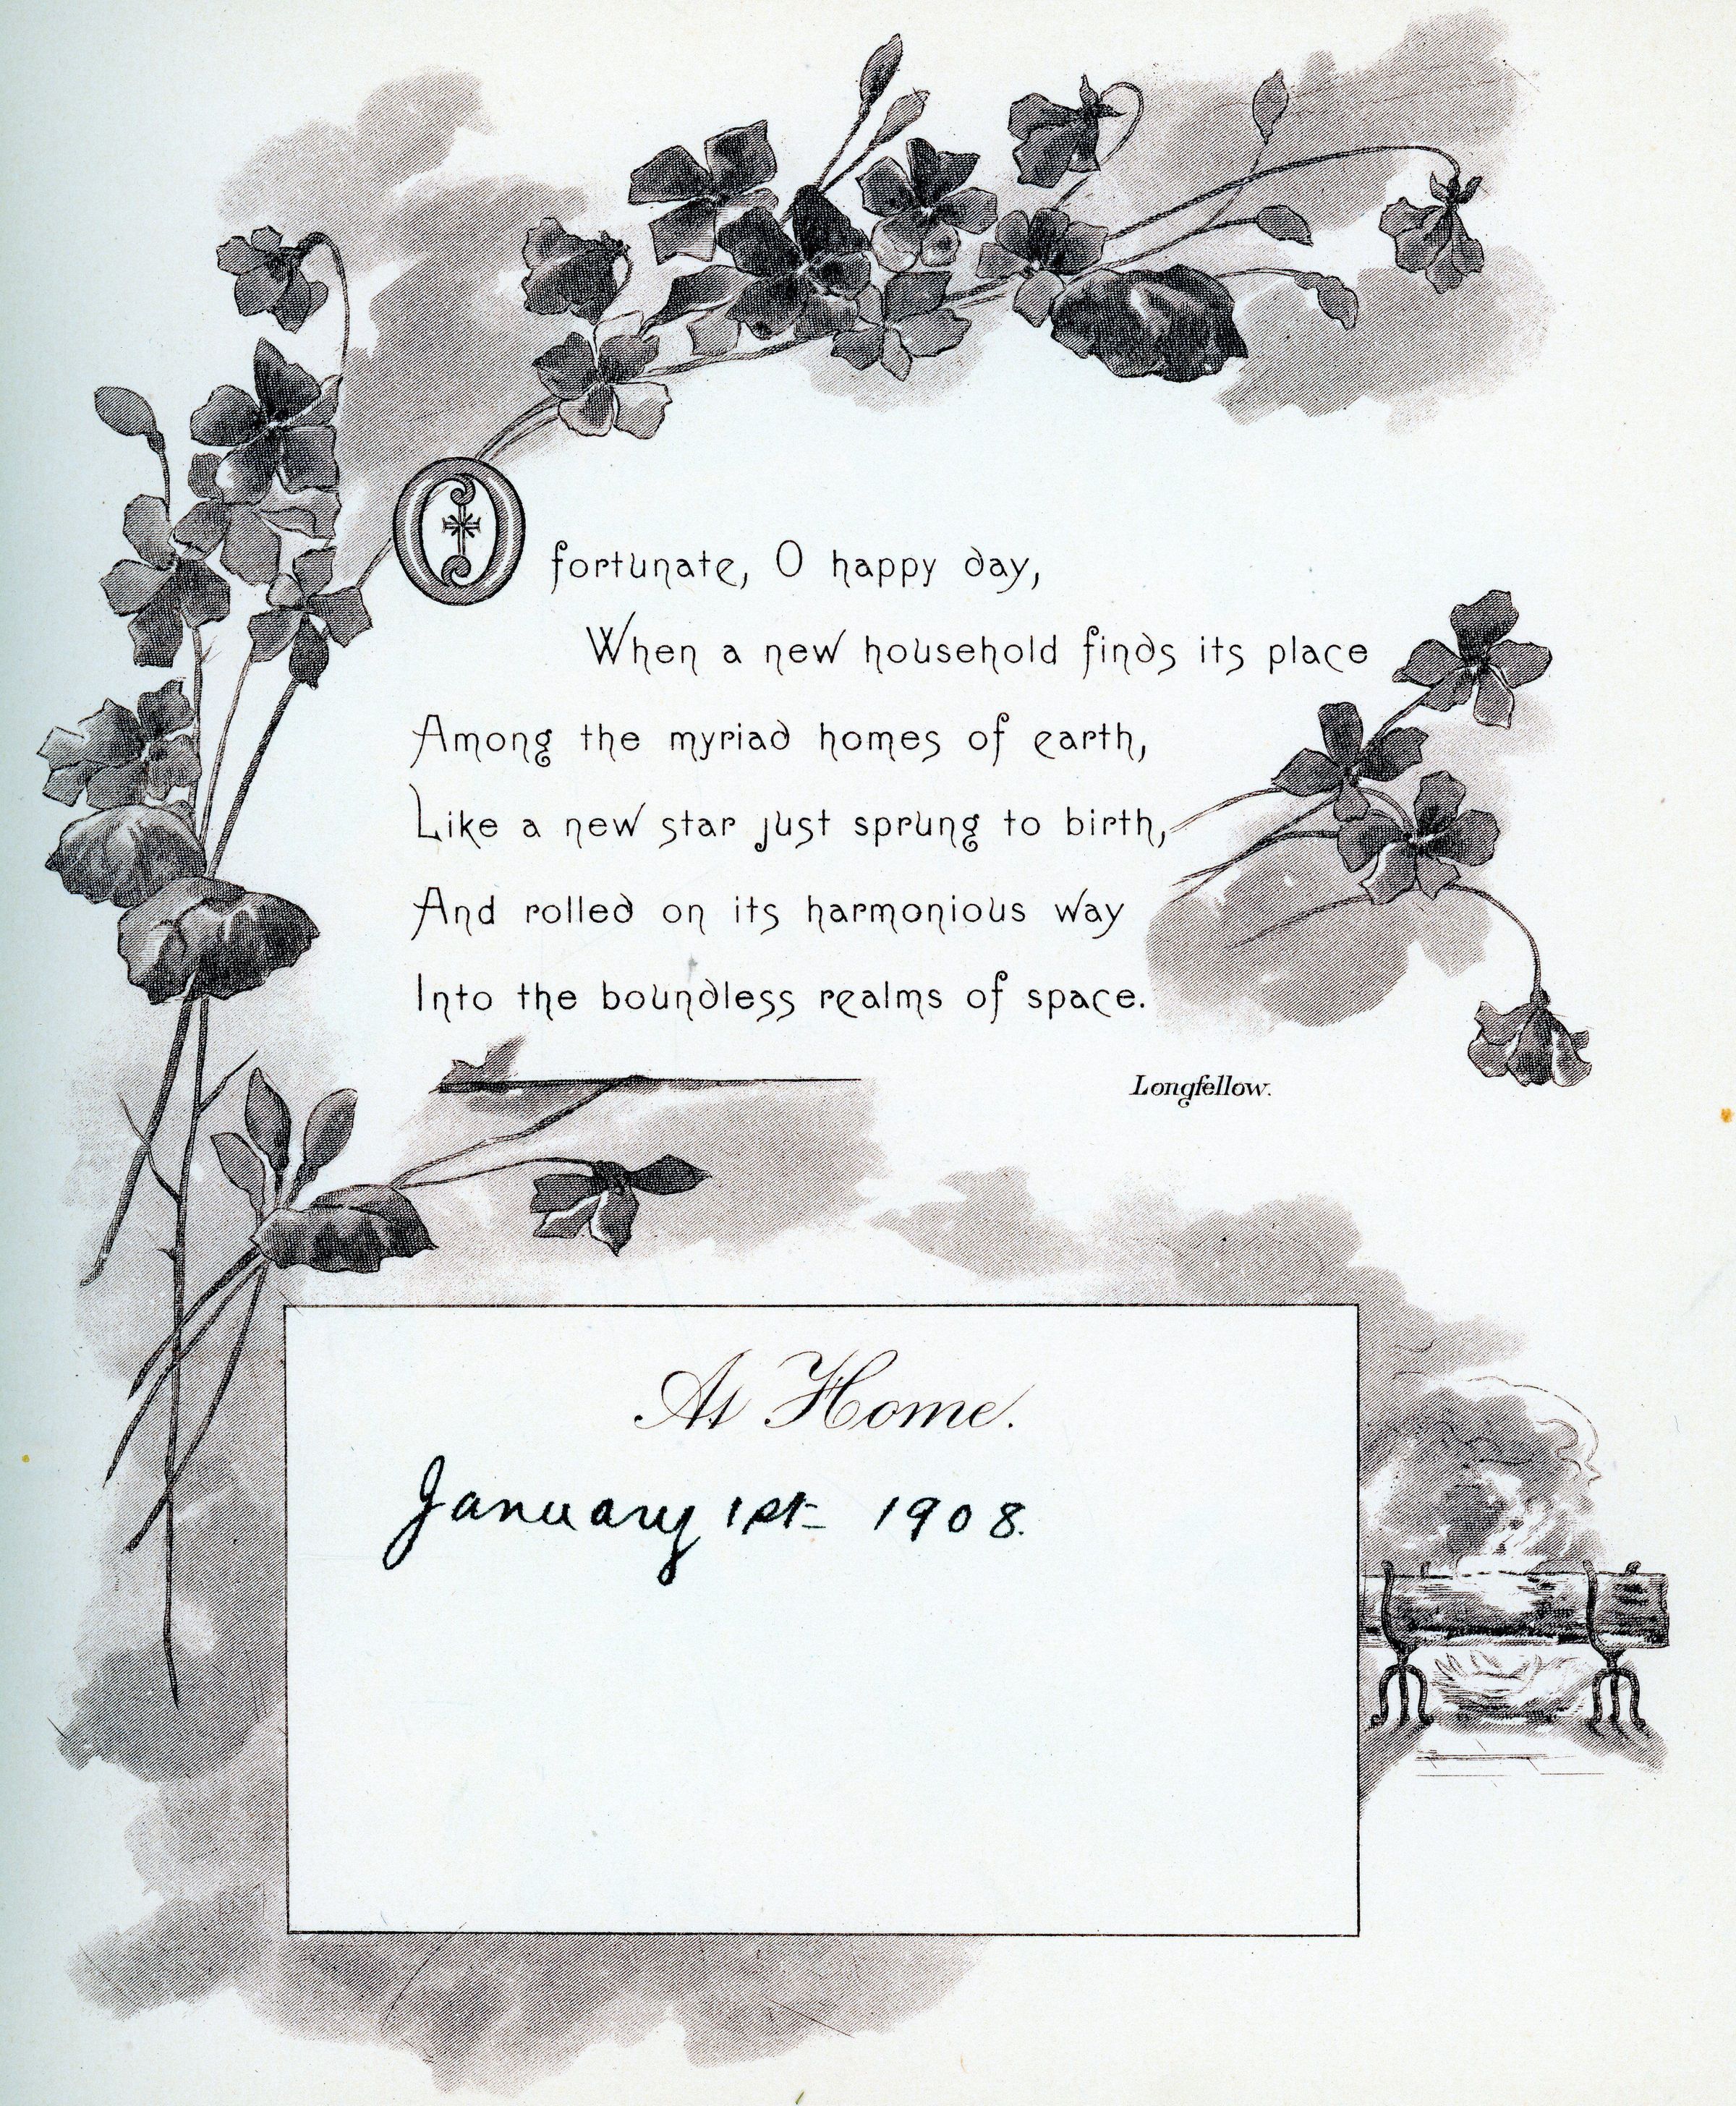 O fortunate, O happy day,
When a new household finds its place
Among the myriad homes of earth,
Like a new star just sprung to birth,
And rolled on its harmonious way
Into the boundless realms of space.
Longfellow.
At Home.
January 1st 1908.